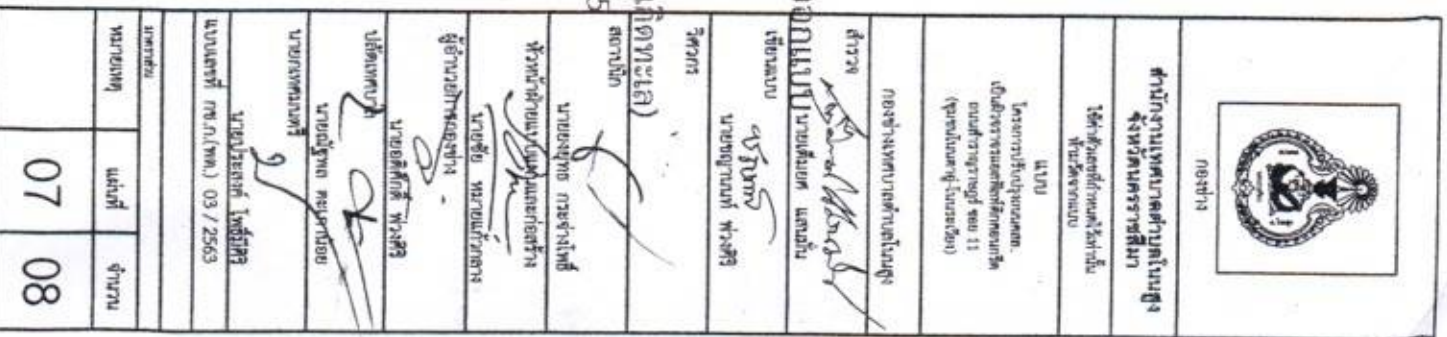 กองช่าง
สำนักงานเทศบาลตำบลโนนสูง
จังหวัดนครราชสีมา
ใช้ค่าตัวเลขที่กำหนดไว้เท่านั้น
ห้ามวัดจากแบบ
แบบ
โครงการปรับปรุงถนนคสล.
เป็นผิวจราจรแอสฟัลท์ติกคอนกรีต
ถนนสำราญราษฎร์ ซอย 11
กองช่างเทศบาลตำบลโนนสูง
สำรวจ
นายเติมยศ แสนมั่น
เขียนแบบ
นายชญานนท์ พ่วงศิริ
วิศวกร
สถาปนิก
นายยงยุทธ กระจ่างโพธิ์
หัวหน้าฝ่ายแบบแผนและก่อสร้าง
นายชัย หมายแก้วกลาง
ผู้อำนวยการกองช่าง
นายอดิศักดิ์ พ่วงศิริ
ปลัดเทศบาล
นายณัฐพล
นายกเทศมนตรี
นายประสงค์ โพธิ์มีศิริ
แบบเลขที่ กช.ถ.(พด.) 03 / 2563
มาตราส่วน
หมายเหตุ แผ่นที่ จำนวน
07 08